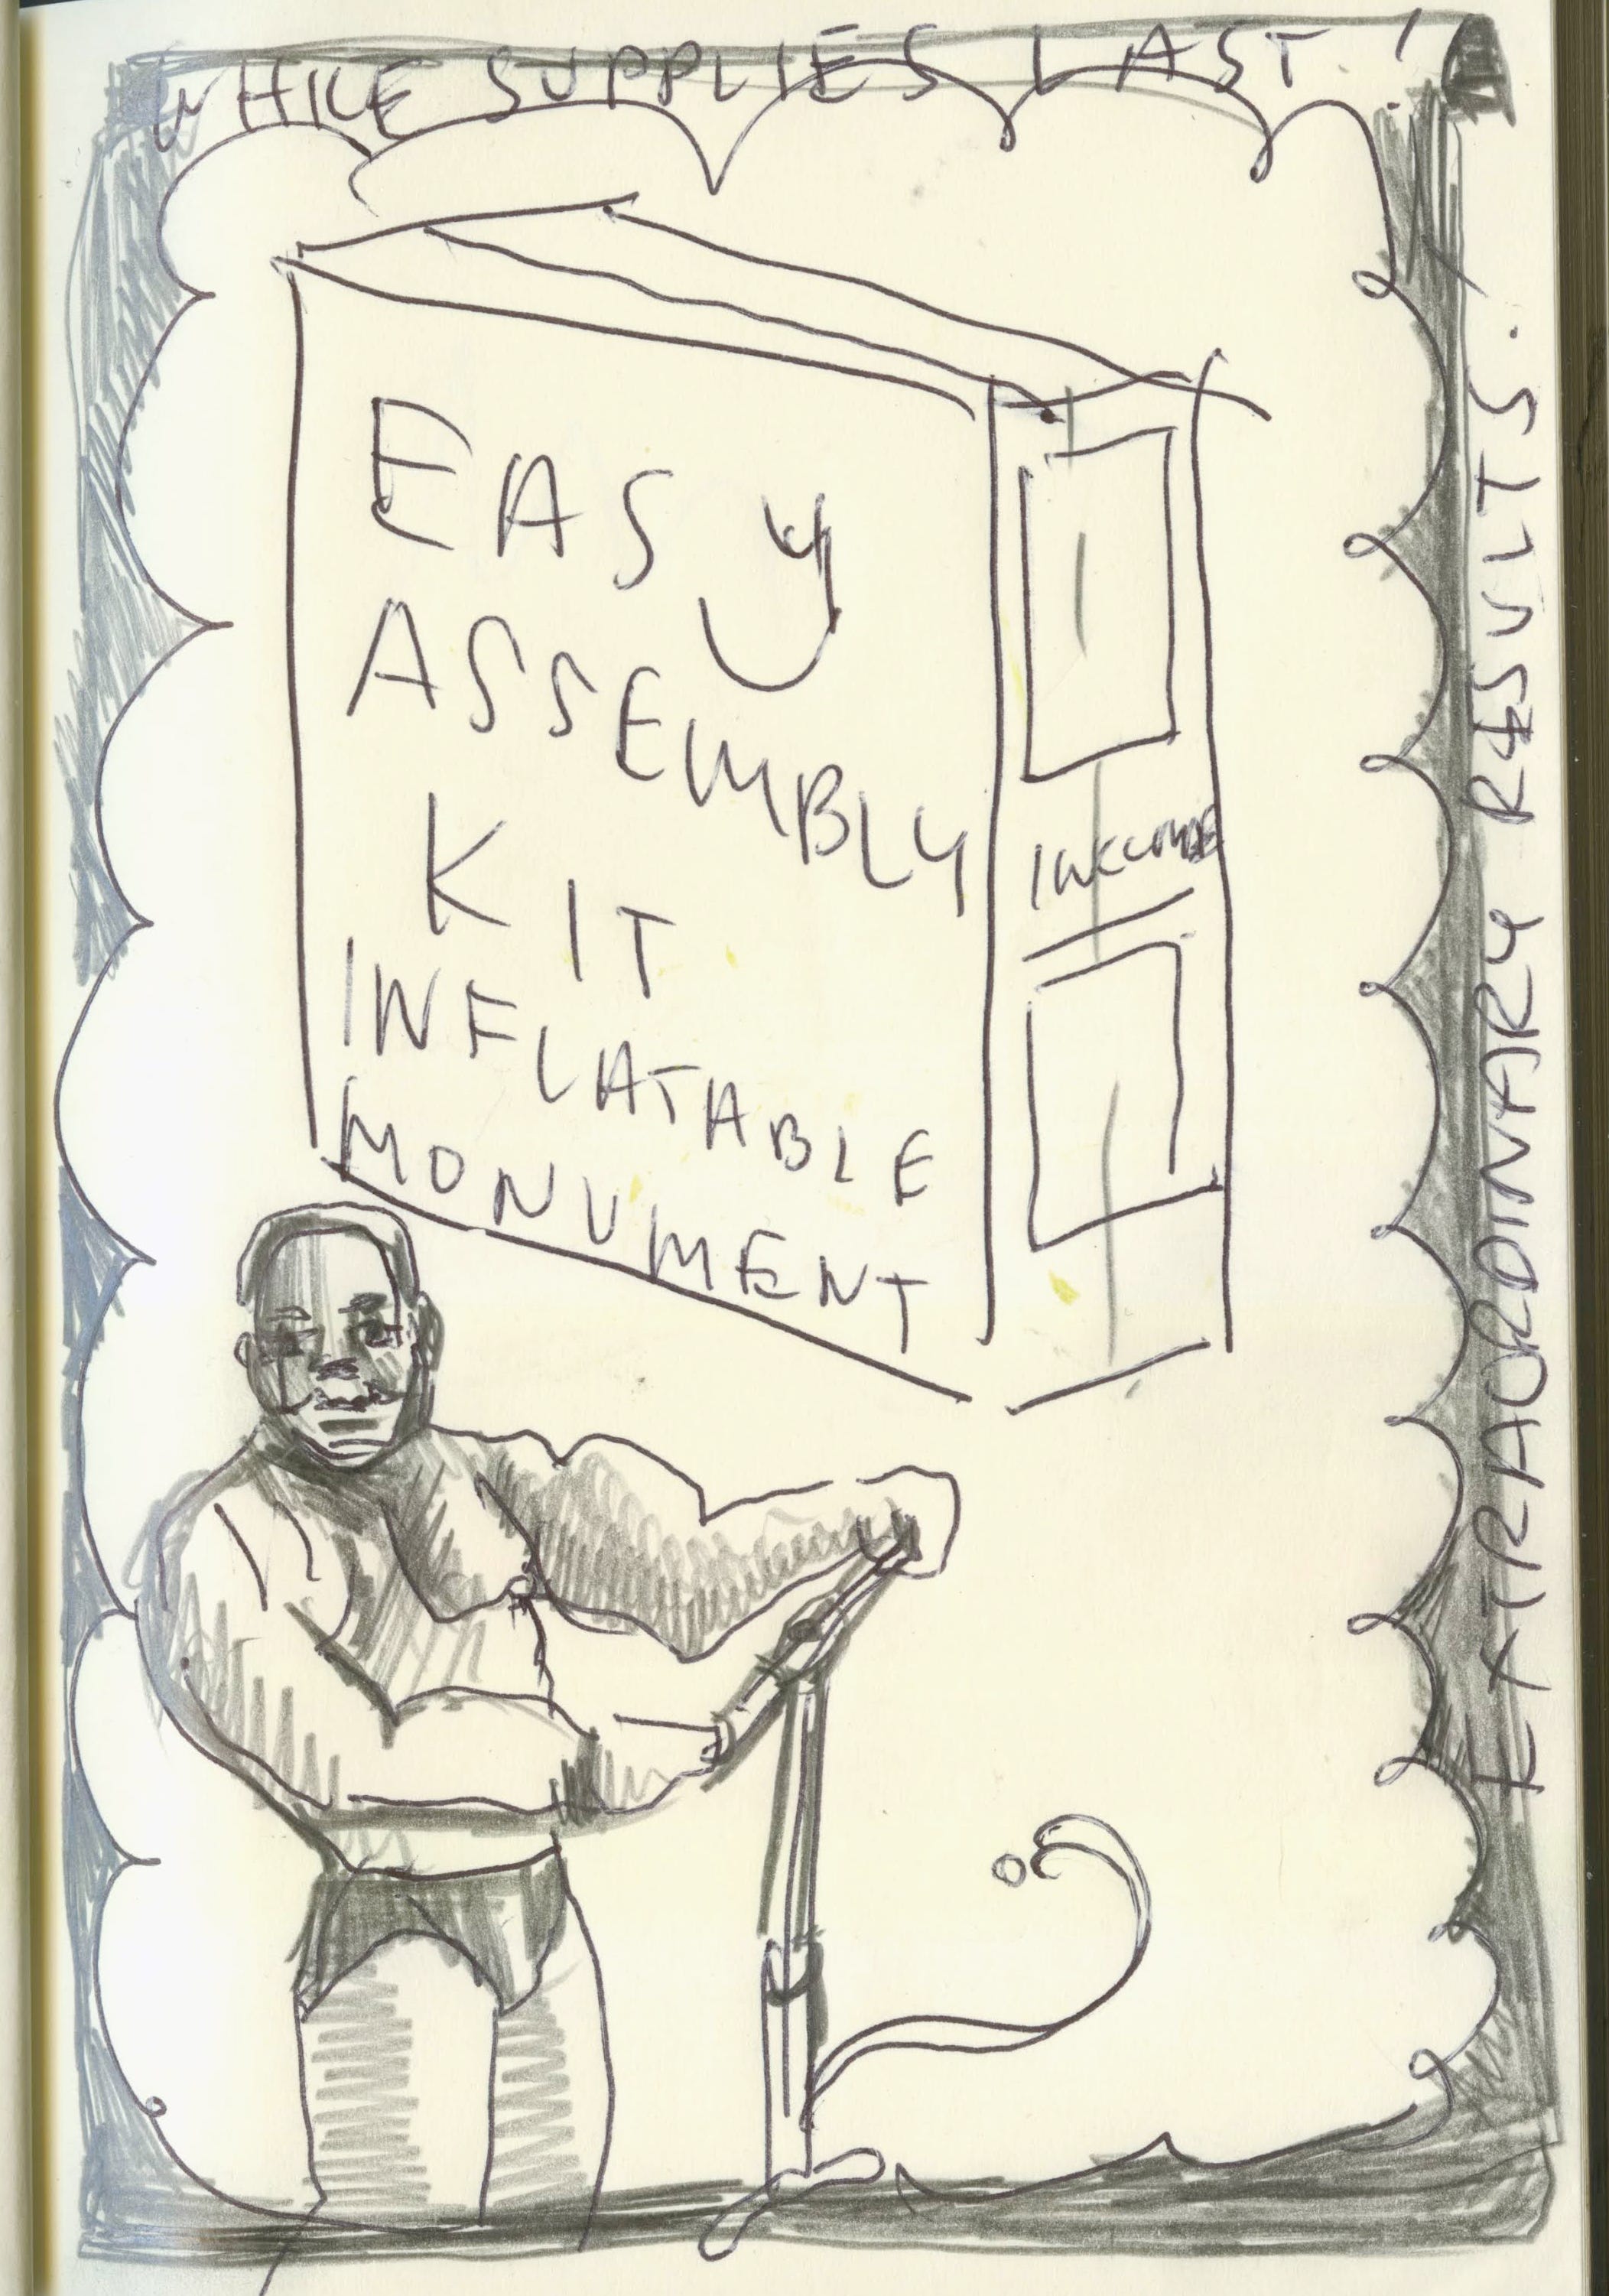 WHILE SUPPLIES LAST!
EASY
ASSEMBLY
KIT
INFLATABLE
MONUMENT
EXTRAORDINARY RESULTS!